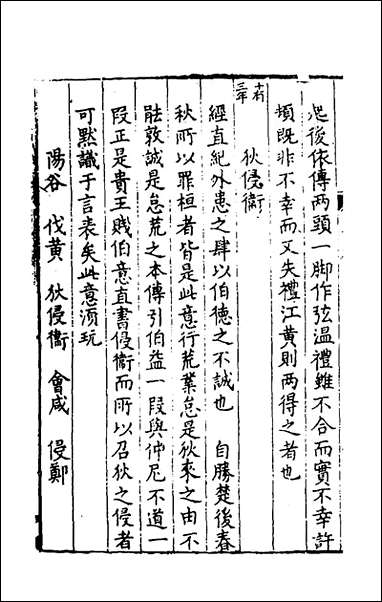 怨後依傳兩頭一脚作弦温禮雖不合而實不幸許
頃既非不幸而又失禮江黃則两得之者也
十有三年
狄侵衛
經直紀外患之肆以伯德之不誠也　自勝楚後春
秋所以罪桓者皆是此意行荒業怠是狄來之由不
能敦誠是怠荒之本傳引伯益一段與仲尼不道一
段正是貴王賤伯意直書侵衞而所以召狄之侵者
可默識于言表矣此意須玩
陽谷　伐黃　狄侵衞　會咸　侵鄭